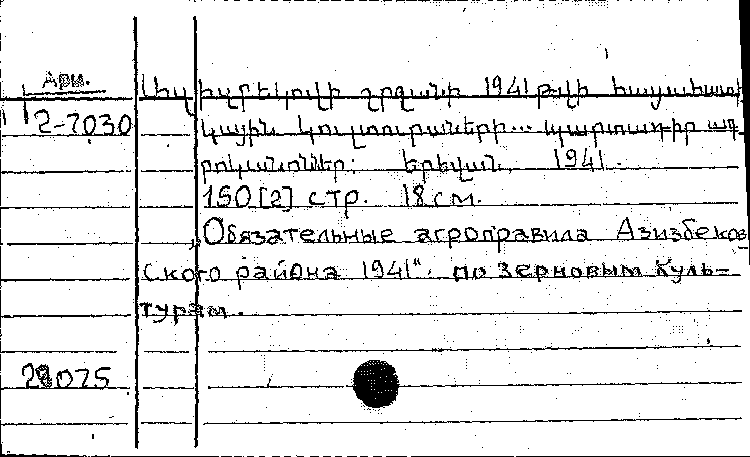 Арм.
Ազիզբեկովի շրջանի 1941 թվի հացահատի
12-7030
կային կուլտուրաների... պարտադիր ագ
րոկանոններ: Երեվան, 1941.
150 [2] стр. 18 см.
„Обязательные агроправила Азизбеков
ского района 1941" по зерновым куль-
турам.
28075